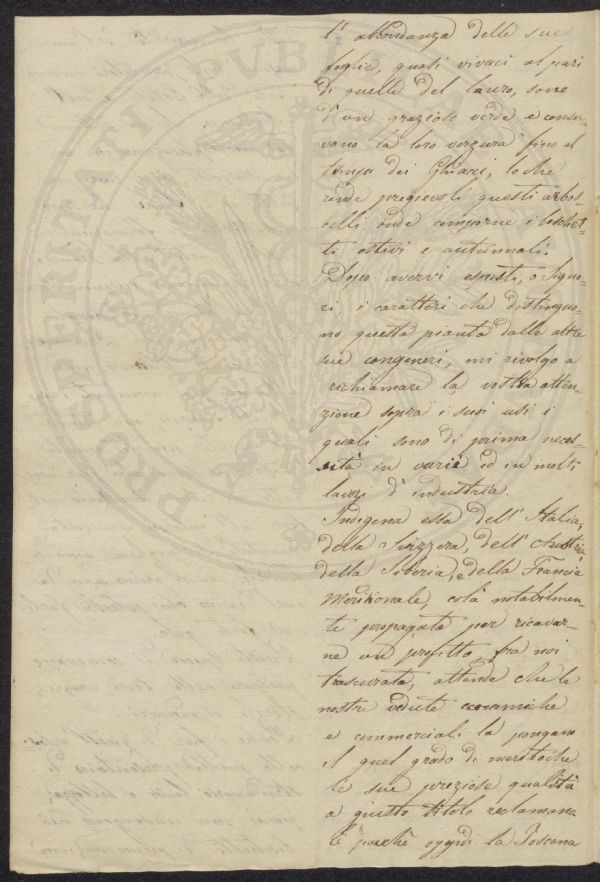 l'abbondanza delle sue
foglie, quasi vivaci al pari
di quelle del lauro, sono
d'un grazioso verde e conser-
vano la loro verzura fino al
tempo dei Ghiacci, loche
rende pregievoli questi arbos-
celli onde comporne i boschet-
ti estivi e autunnali.
Dopo avervi esposti, o Signo-
ri i caratteri che distinguo-
no questa pianta dalle altre
sue congeneri, mi rivolgo a
richiamare la vostra atten-
zione sopra i suoi usi i
quali sono di prima neces-
sità in varie ed in molti
lavori d'industria.
Indigena essa dell'Italia,
della Svizzera, dell'Austria,
della Siberia, e della Francia
Meridionale, colà notabilmen-
te propagata per ricavar-
ne un profitto, fra noi
trascurata, attende che le
nostre vedute economiche
e commerciali la pongano
il quel grado di merito che
le sue preziose qualità
a giusto titolo reclamano
E perchè oggidì la Toscana
PROSPERITATI PVBLI